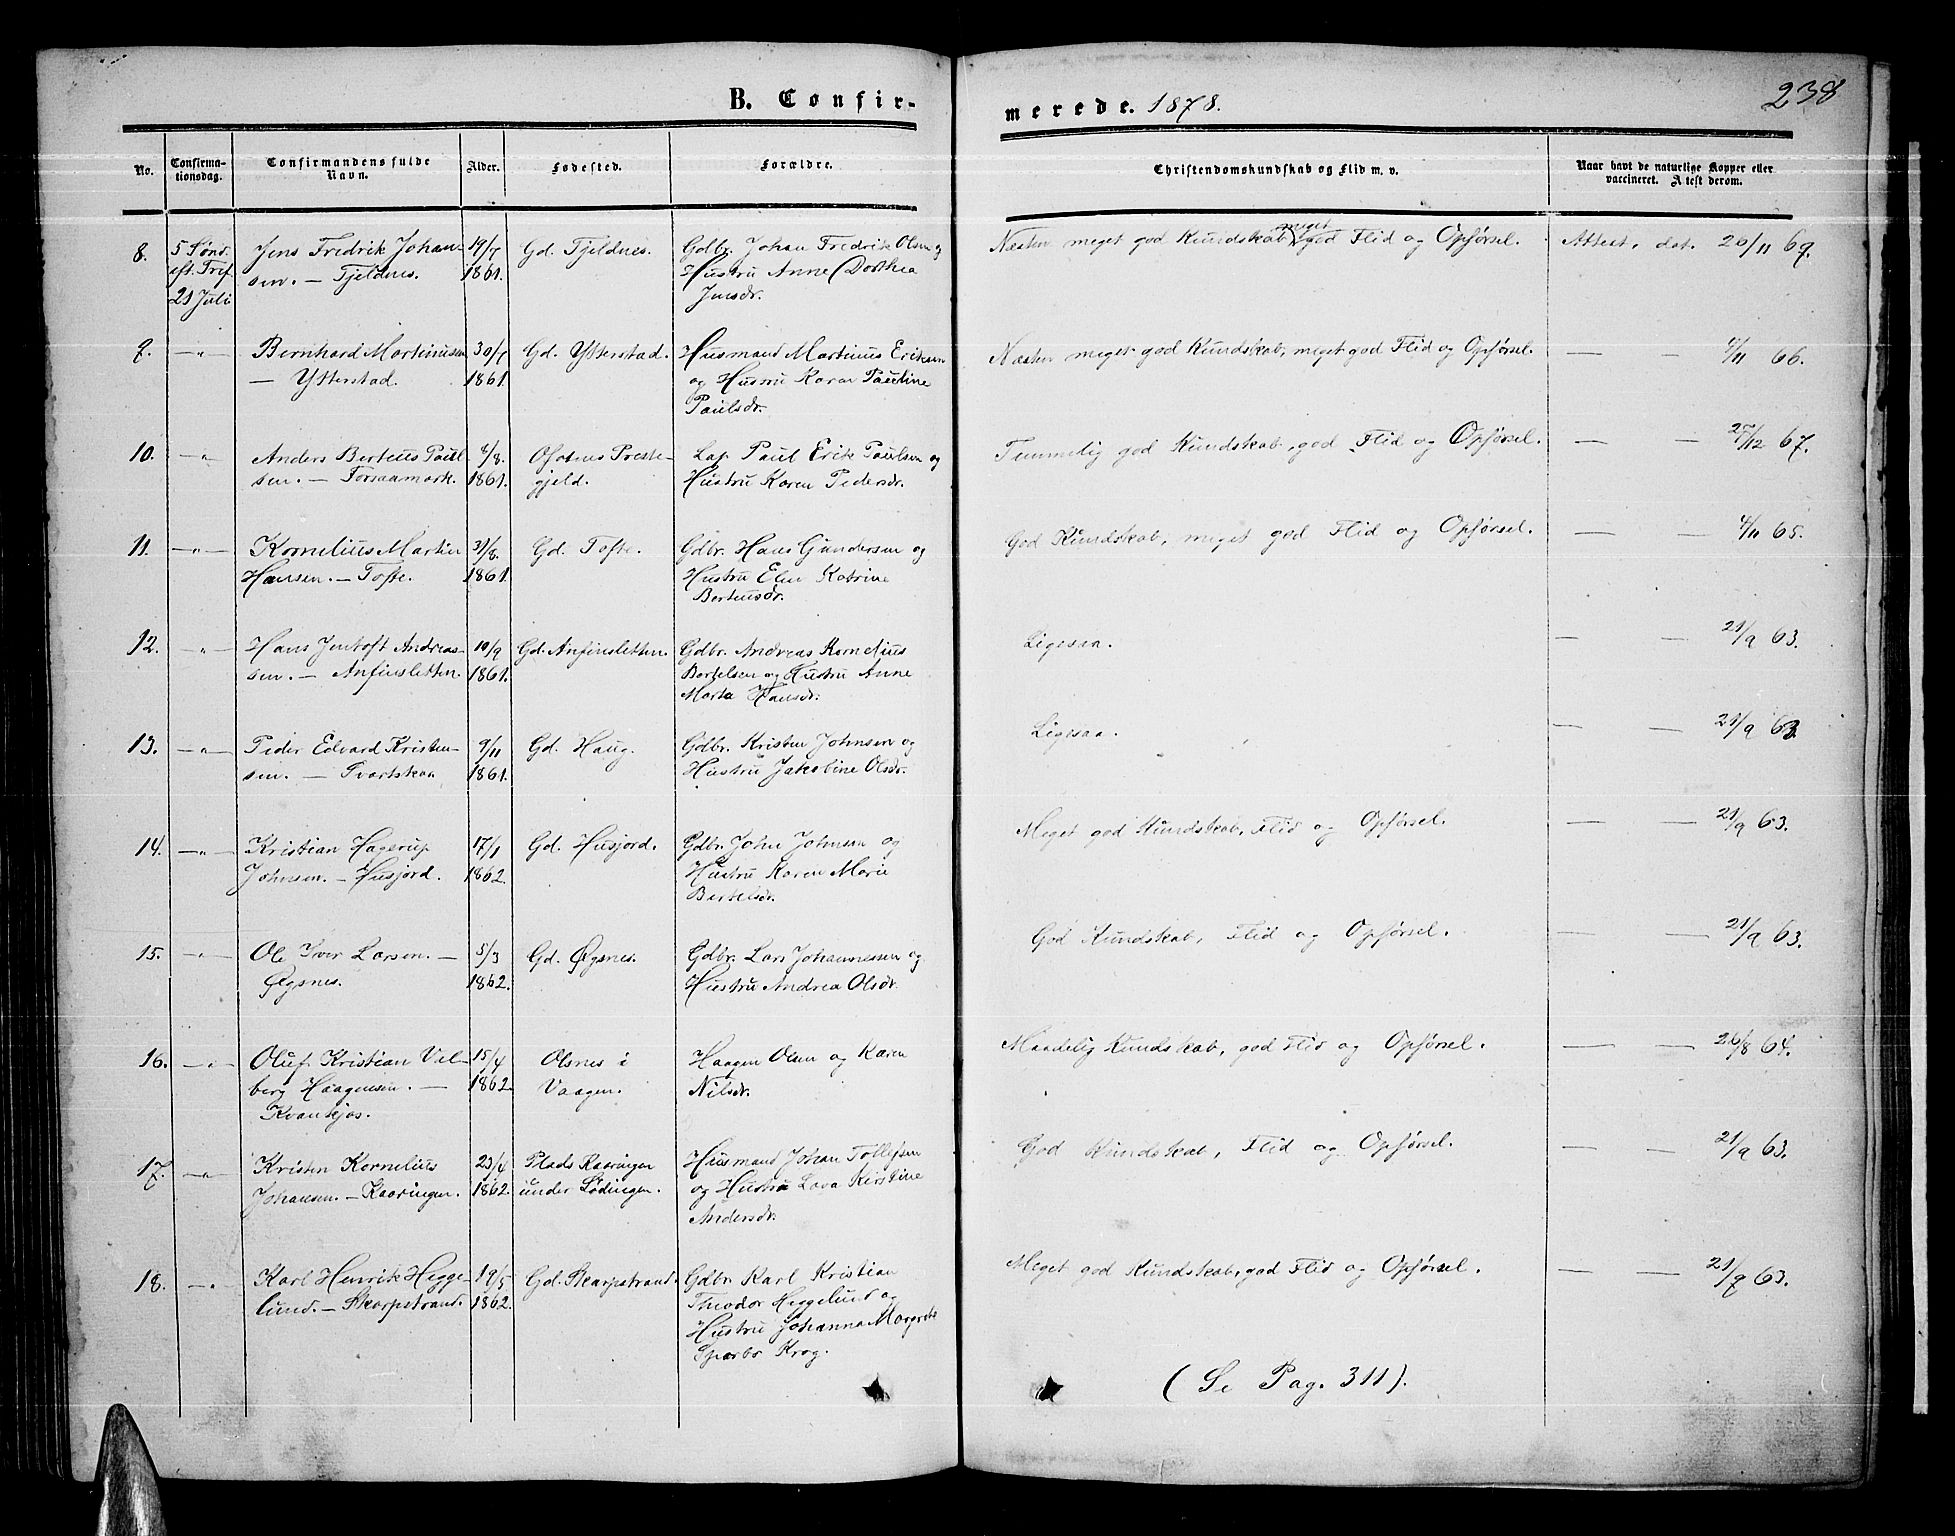 B. Confir-
merede. 1878.
238
No.
Confirma-
tionsdag.
Confirmandens fulde
Navn.
Alder.
Fødested.
Forældre.
Christendomskundskab og Flid m. v.
Naar havt de naturlige Kopper eller
vaccineret. Attest derom.
8. 5 Sønd. Jens Fredrik Johan- 19/7 Gd. Tjeldnes. Gdbr. Johan Fredrik Olsen og Næsten meget god Kundskab, meget god Flid og Opførsel. Attest. dat. 20/11 69.
eft. Tref. sen. — Tjeldnes. 1861. Hustru Anne Dorthea
21 Juli Jensdr.
9. —„— Bernhard Martinusen 30/7 Gd. Ytterstad. Husmand Martinus Eriksen Næsten meget god Kundskab, meget god Flid og Opførsel. — — 4/11 66.
— Ytterstad. 1861. og Hustru Karen Pauline
Paulsdr.
10. —„— Anders Berteus Paul- 4/8. Ofotens Preste- Lap Paul Erik Paulsen og Temmelig god Kundskab, god Flid og Opførsel. — — 27/12 67.
sen. — Forsaamark. 1861. gjeld. Hustru Karen Pedersdr.
11. —„— Kornelius Martin 31/8. Gd. Tofte. Gdbr. Hans Gundersen og God Kundskab, meget god Flid og Opførsel. — — 4/11 65.
Hansen. — Tofte. 1861. Hustru Elen Katrine
Berteusdr.
12. —„— Hans Jentoft Andreas- 10/9 Gd. Anfinsletten. Gdbr. Andreas Kornelius Ligesaa. — — 21/9 63.
sen. — Anfinsletten. 1861. Bertelsen og Hustru Anne
Marta Hansdr.
13. —„— Peder Edvard Kristen- 9/11 Gd. Haug. Gdbr. Kristen Johnsen og Ligesaa. — — 21/9 63.
sen. — Svartskar. 1861. Hustru Jakobine Olsdr.
14. —„— Kristian Hagerup 17/1 Gd. Husjord. Gdbr. John Johnsen og Meget god Kundskab, Flid og Opførsel. — — 21/9 63.
Johnsen. — Husjord. 1862. Hustru Karen Marie
Bertelsdr.
15. —„— Ole Iver Larsen. — 5/3 Gd. Øgsnes. Gdbr. Lars Johannessen og God Kundskab, Flid og Opførsel. — — 21/9 63.
Øgsnes. 1862. Hustru Andrea Olsdr.
16. —„— Oluf Kristian Val- 15/4 Olsnes i Haagen Olsen og Karen Maadelig Kundskab, god Flid og Opførsel. — — 26/8 64.
berg Haagensen. — 1862. Vaagen. Nilsdr.
Kvantkjos.
17. —„— Kristen Kornelius 23/4 Plads Kaaringen Husmand Johan Tollefsen God Kundskab, Flid og Opførsel. — — 21/9 63.
Johansen. — Kaaringen. 1862. under Lødingen. og Hustru Lava Kirstine
Andersdr.
18. —„— Karl Henrik Hegge- 19/5 Gd. Skarpstrand. Gdbr. Karl Kristian Meget god Kundskab, god Flid og Opførsel. — — 21/9 63.
lund. — Skarpstrand. 1862. Theodor Heggelund og
Hustru Johanna Margrete
Sparbo Krog.
(Se Pag. 311).